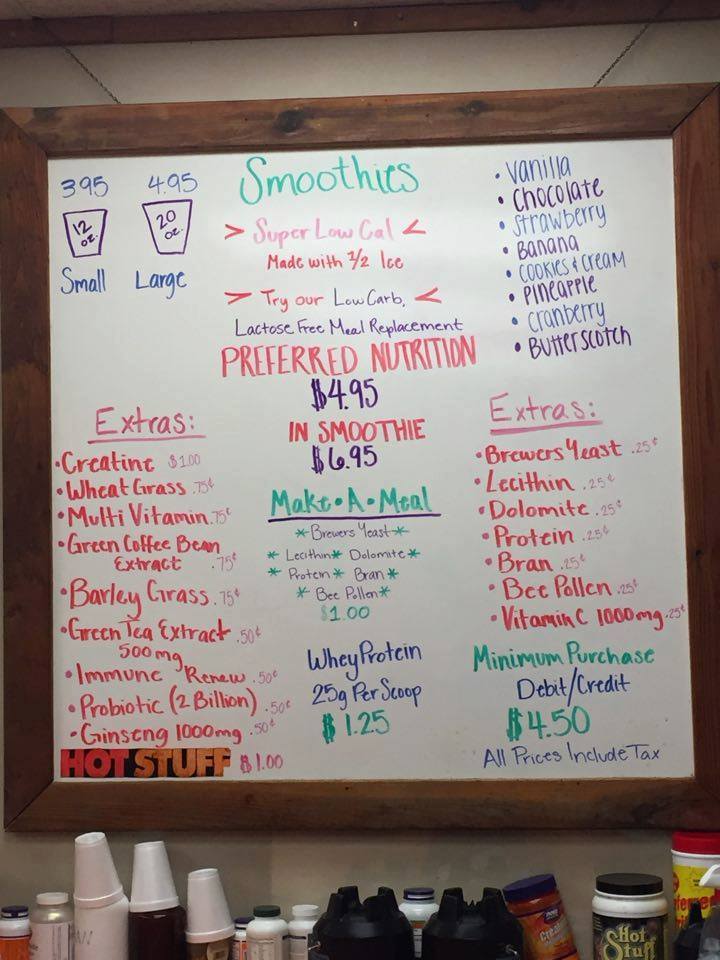 3.95 4.95
12 oz. 20 oz.
Small Large
Smoothies
> Super Low Cal <
Made with 1/2 Ice
> Try our Low Carb, <
Lactose Free Meal Replacement
PREFERRED NUTRITION
$4.95
IN SMOOTHIE
$6.95
• Vanilla
• Chocolate
• Strawberry
• Banana
• Cookies & Cream
• Pineapple
• Cranberry
• Butterscotch
Extras:
• Creatine $1.00
• Wheat Grass .75¢
• Multi Vitamin .75¢
• Green Coffee Bean
Extract .75¢
• Barley Grass .75¢
• Green Tea Extract .50¢
500 mg
• Immune Renew .50¢
• Probiotic (2 Billion) .50¢
• Ginseng 1000mg .50¢
HOT STUFF $1.00
Make • A • Meal
* Brewers Yeast *
* Lecithin * Dolomite *
* Protein * Bran *
* Bee Pollen *
$1.00
Whey Protein
25g Per Scoop
$1.25
Extras:
• Brewers Yeast .25¢
• Lecithin .25¢
• Dolomite .25¢
• Protein .25¢
• Bran .25¢
• Bee Pollen .25¢
• Vitamin C 1000mg .25¢
Minimum Purchase
Debit/Credit
$4.50
All Prices Include Tax
NOW
Hot
Stuff